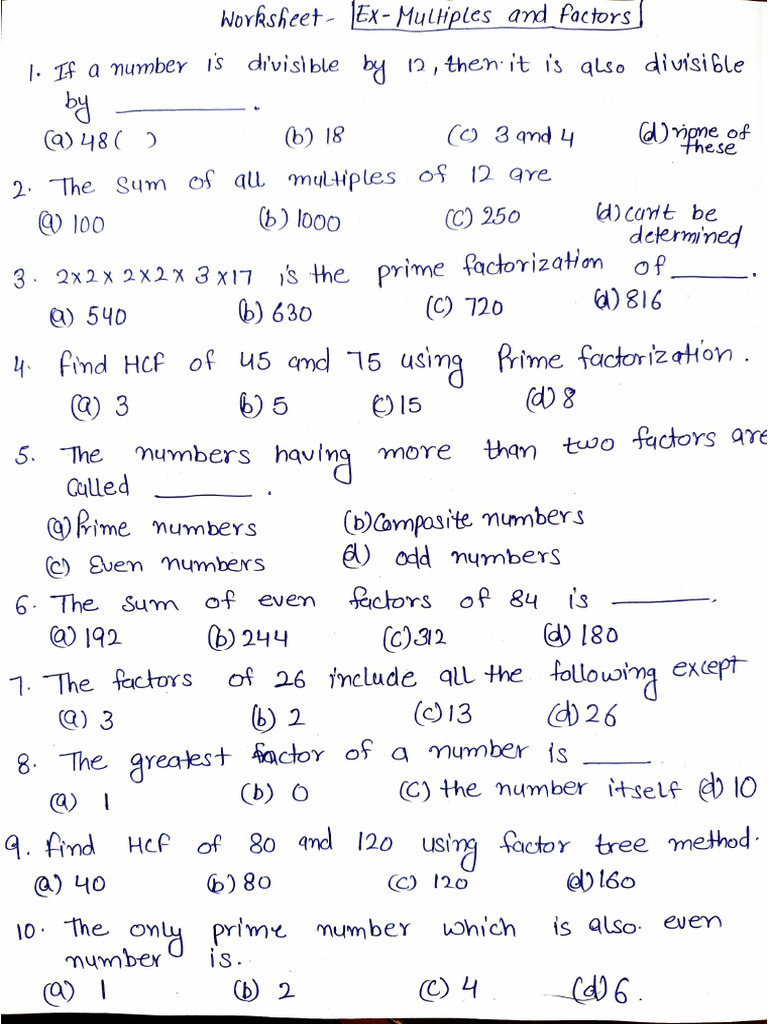 Worksheet - Ex - Multiples and Factors
1. If a number is divisible by 12, then it is also divisible
by ________.
(a) 48 ( ) (b) 18 (c) 3 and 4 (d) none of
these
2. The sum of all multiples of 12 are
(a) 100 (b) 1000 (c) 250 (d) can't be
determined
3. 2x2x2x2x3x17 is the prime factorization of ______.
(a) 540 (b) 630 (c) 720 (d) 816
4. Find HCF of 45 and 75 using Prime factorization.
(a) 3 (b) 5 (c) 15 (d) 8
5. The numbers having more than two factors are
called ______.
(a) Prime numbers (b) Composite numbers
(c) Even numbers (d) odd numbers
6. The sum of even factors of 84 is ______.
(a) 192 (b) 244 (c) 312 (d) 180
7. The factors of 26 include all the following except
(a) 3 (b) 2 (c) 13 (d) 26
8. The greatest factor of a number is ____
(a) 1 (b) 0 (c) the number itself (d) 10
9. Find HCF of 80 and 120 using factor tree method.
(a) 40 (b) 80 (c) 120 (d) 160
10. The only prime number which is also even
number is.
(a) 1 (b) 2 (c) 4 (d) 6.